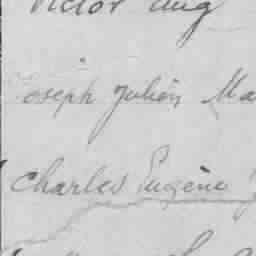 Victor Aug
oseph Julien Ma
Charles Eugène